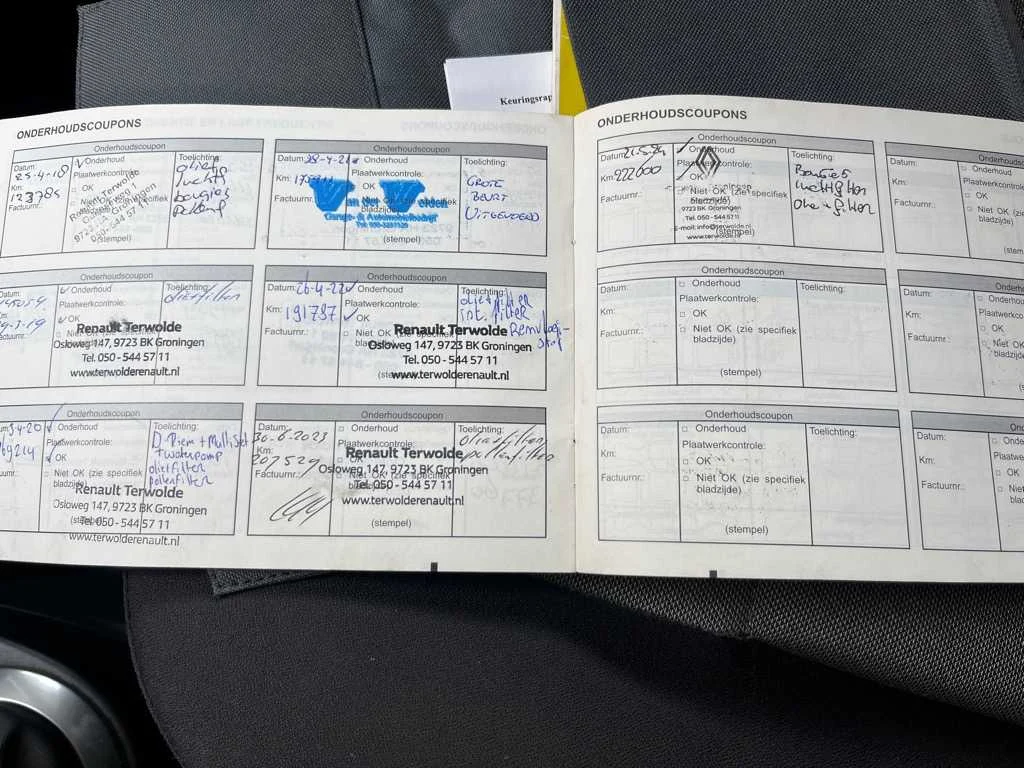 Keuringsrap
ONDERHOUDSCOUPONS
Onderhoudscoupon
Datum:
25-4-18
Km:
Factuurnr.:
Onderhoud
Plaatwerkcontrole:
OK
9723
Groningen
050-544 57 11
(stempel)
Toelichting:
oliefi
lucht
bougies
Onderhoudscoupon
Datum: 28-4-21
Km:
Factuurnr.:
Onderhoud
Plaatwerkcontrole:
OK
Niet OK (zie specifiek
bladzijde)
Garage- & Automobielbedrijf
(stempel)
Toelichting:
GROTE
BEURT
UITGEVOERD
Onderhoudscoupon
Datum:
Km:
Factuurnr.:
Onderhoud
Plaatwerkcontrole:
OK
Niet OK
Renault Terwolde
Osloweg 147, 9723 BK Groningen
Tel. 050 - 544 57 11
www.terwolderenault.nl
Toelichting:
oliefilter
Onderhoudscoupon
Datum: 26-4-22
Km: 191787
Factuurnr.:
Onderhoud
Plaatwerkcontrole:
OK
Niet OK (zie specifiek
Renault Terwolde
Osloweg 147, 9723 BK Groningen
Tel. 050 - 544 57 11
www.terwolderenault.nl
Toelichting:
oliefilter
int. filter
Remvloei-
stof
Onderhoudscoupon
Onderhoud
Plaatwerkcontrole:
OK
Niet OK (zie specifiek
bladzijde)
Renault Terwolde
Osloweg 147, 9723 BK Groningen
Tel. 050 - 544 57 11
www.terwolderenault.nl
Toelichting:
D-Riem + Multi Set
+ waterpomp
oliefilter
pollenfilter
Onderhoudscoupon
30-6-2023
Km:
207529
Factuurnr.:
Onderhoud
Plaatwerkcontrole:
OK
Niet OK (zie specifiek
Renault Terwolde
Osloweg 147, 9723 BK Groningen
Tel. 050 - 544 57 11
www.terwolderenault.nl
(stempel)
Toelichting:
oliefilter
pollenfilter
ONDERHOUDSCOUPONS
Onderhoudscoupon
Datum:
Km: 222000
Factuurnr.:
Onderhoud
OK
Niet OK (zie specifiek
bladzijde)
9723 BK Groningen
Tel. 050 - 5445711
E-mail: info@terwolde.nl
www.terwolde.nl
(stempel)
Toelichting:
Bougies
luchtfilter
olie + filter
Datum:
Km:
Factuurnr.:
Onderhoud
Plaatwerkcontrole:
OK
Niet OK (zie
bladzijde)
(stempel)
Onderhoudscoupon
Datum:
Km:
Factuurnr.:
Onderhoud
Plaatwerkcontrole:
OK
Niet OK (zie specifiek
bladzijde)
(stempel)
Toelichting:
Datum:
Km:
Factuurnr.:
Onderhoud
Plaatwerkcontrole:
OK
Niet OK (zie
bladzijde)
Onderhoudscoupon
Datum:
Km:
Factuurnr.:
Onderhoud
Plaatwerkcontrole:
OK
Niet OK (zie specifiek
bladzijde)
(stempel)
Toelichting:
Datum:
Km:
Factuurnr.:
Onderhoud
Plaatwerkcontrole:
OK
Niet OK
bladzijde)